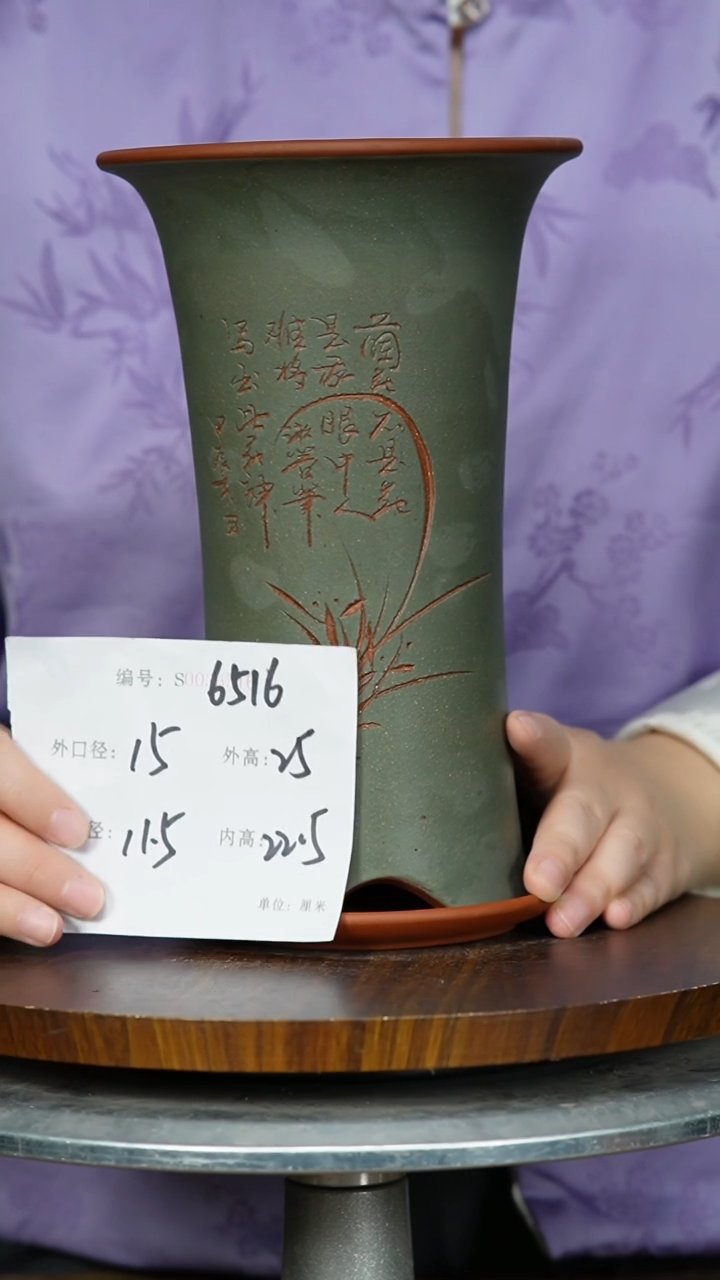 蘭花不是花
是我眼中人
难将湘管筆
写出此花神
编号: S00 6516
外口径: 15 外高: 25
径: 11.5 内高: 22.5
单位: 厘米